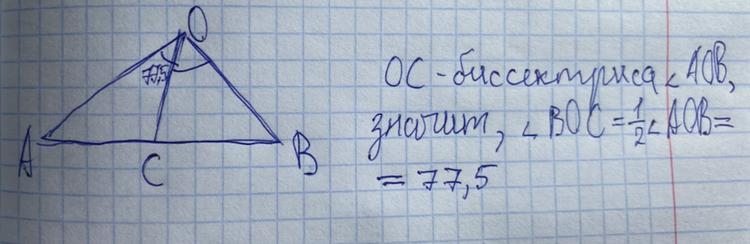 O
77,5
A
C
B
OC - биссектриса ∠ AOB,
значит, ∠ BOC = 1/2 ∠ AOB =
= 77,5